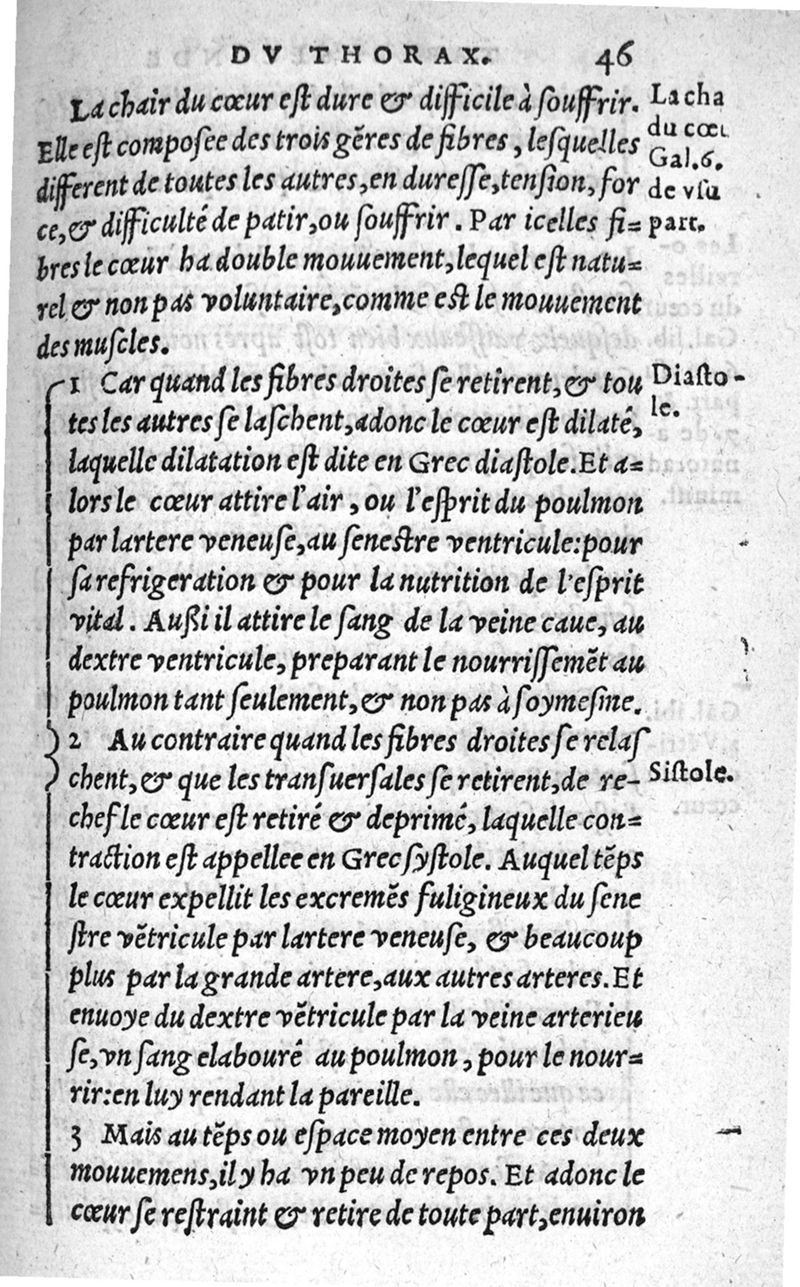 DV THORAX. 46
La chair du cœur eſt dure & difficile à ſouffrir.
Elle eſt compoſee des trois gẽres de fibres, leſquelles
different de toutes les autres, en dureſſe, tenſion, for
ce, & difficulté de patir, ou ſouffrir. Par icelles fi=
bres le cœur ha double mouuement, lequel eſt natu=
rel & non pas voluntaire, comme eſt le mouuement
des muſcles.
La cha
du cœu
Gal. 6.
de vſu
part.
1 Car quand les fibres droites ſe retirent, & tou
tes les autres ſe laſchent, adonc le cœur eſt dilaté,
laquelle dilatation eſt dite en Grec diaſtole. Et a=
lors le cœur attire l'air, ou l'eſprit du poulmon
par lartere veneuſe, au ſeneſtre ventricule: pour
ſa refrigeration & pour la nutrition de l'eſprit
vital. Auſſi il attire le ſang de la veine caue, au
dextre ventricule, preparant le nourriſſemẽt au
poulmon tant ſeulement, & non pas à ſoymeſme.
Diaſto-
le.
2 Au contraire quand les fibres droites ſe relaſ
chent, & que les tranſuerſales ſe retirent, de re-
chef le cœur eſt retiré & deprimé, laquelle con=
traction eſt appellee en Grec ſyſtole. Auquel tẽps
le cœur expellit les excremẽs fuligineux du ſene
ſtre vẽtricule par lartere veneuſe, & beaucoup
plus par la grande artere, aux autres arteres. Et
enuoye du dextre vẽtricule par la veine arterieu
ſe, vn ſang elabouré au poulmon, pour le nour=
rir: en luy rendant la pareille.
Siſtole.
3 Mais au tẽps ou eſpace moyen entre ces deux
mouuemens, il y ha vn peu de repos. Et adonc le
cœur ſe reſtraint & retire de toute part, enuiron